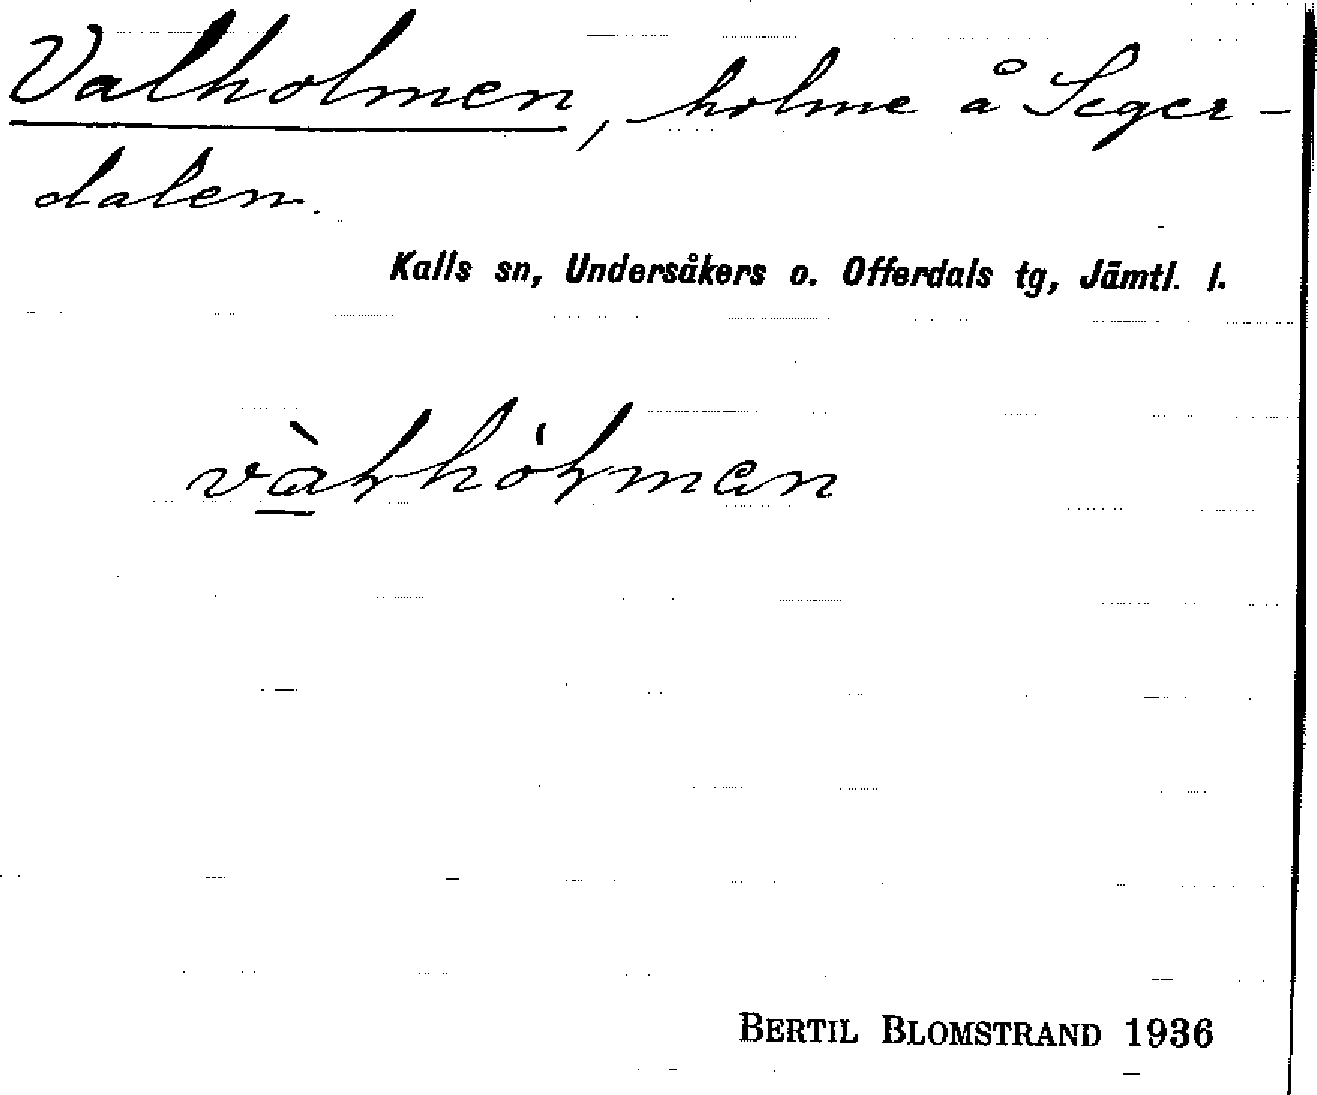 Valholmen, holme å Seger-
dalen.
Kalls sn, Undersåkers o. Offerdals tg, Jämtl. l.
vàɫhòɫmαn
BERTIL BLOMSTRAND 1936